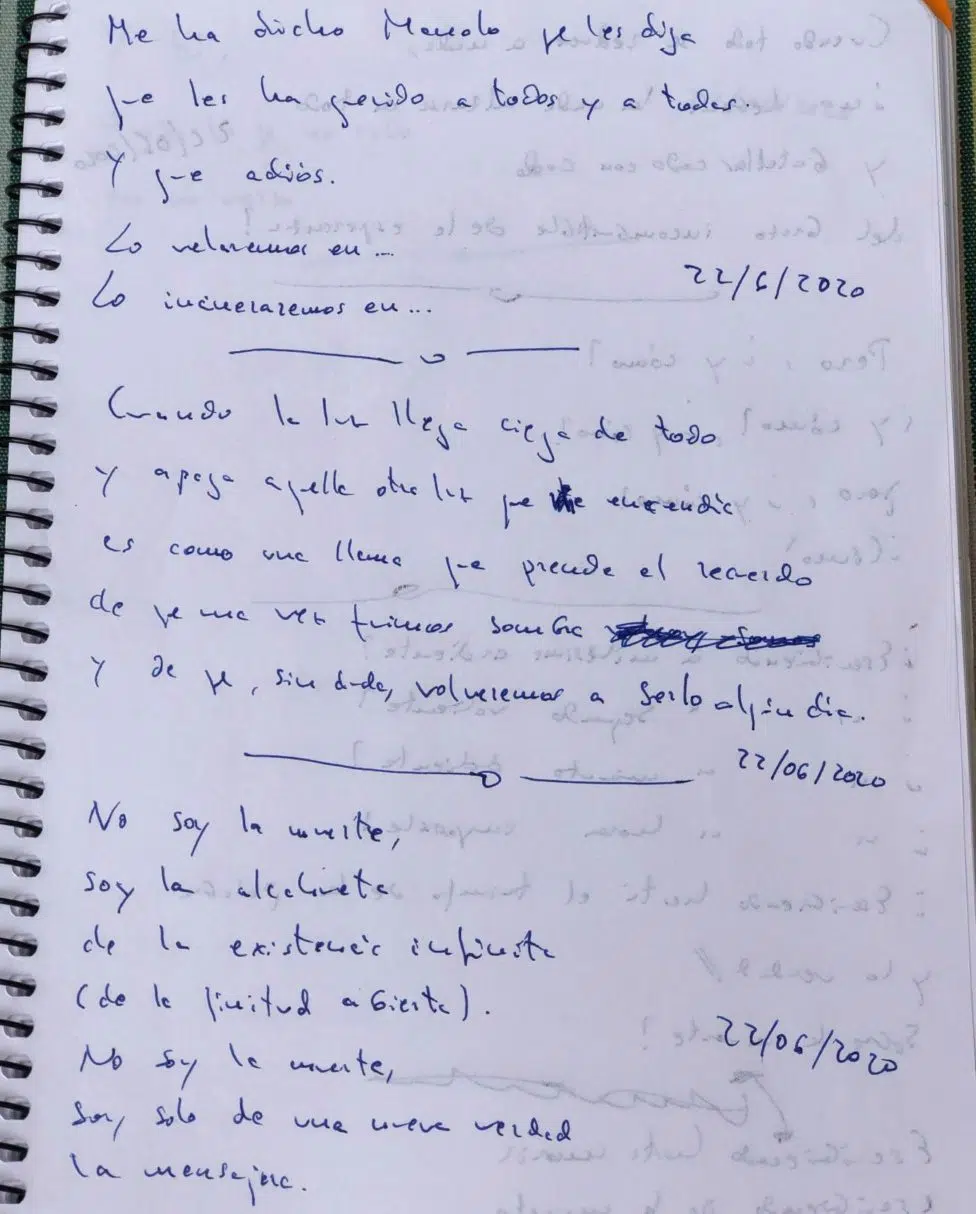 Me ha dicho Manolo que les diga
que les ha querido a todos y a todas.
Y que adiós.
Lo velaremos en...
22/6/2020
Lo incineraremos en...
Cuando la luz llega ciega de todo
y apaga aquella otra luz que encendía
es como una llama que prende el recuerdo
de que una vez fuimos sombra
y de que, sin duda, volveremos a serlo algún día.
22/06/2020
No soy la muerte,
soy la alcahueta
de la existencia infinita
(de la finitud abierta).
22/06/2020
No soy la muerte,
soy solo de una nueva verdad
la mensajera.